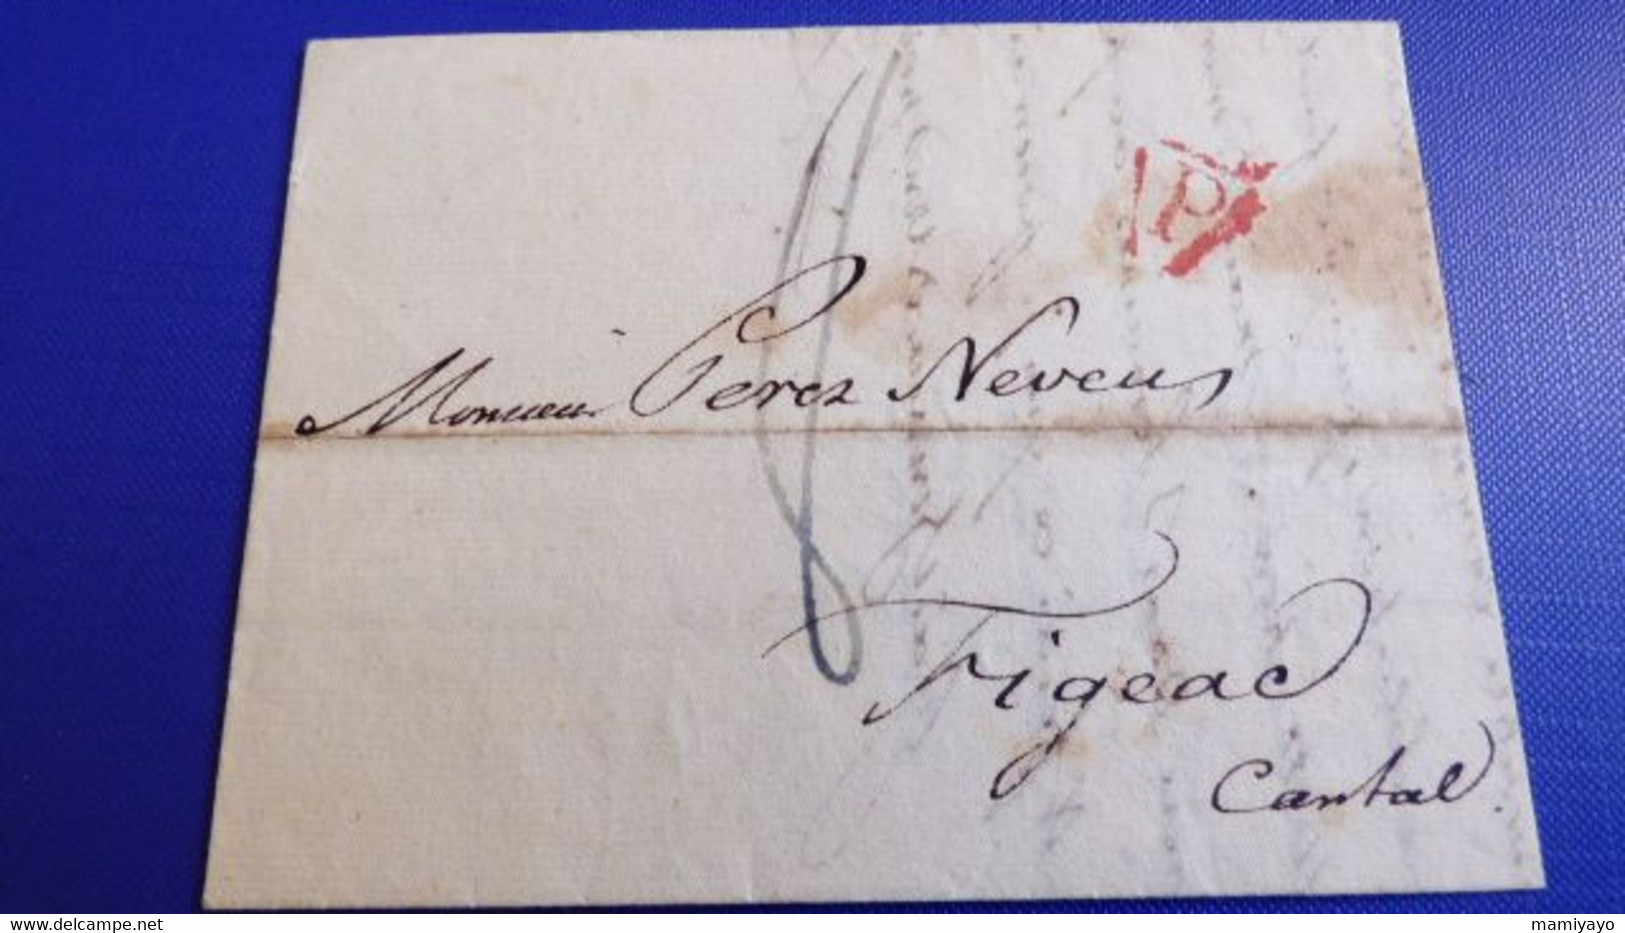 P
8
Monsieur Perez Neveu
Figeac
Cantal.
www.delcampe.net
mamiyayo